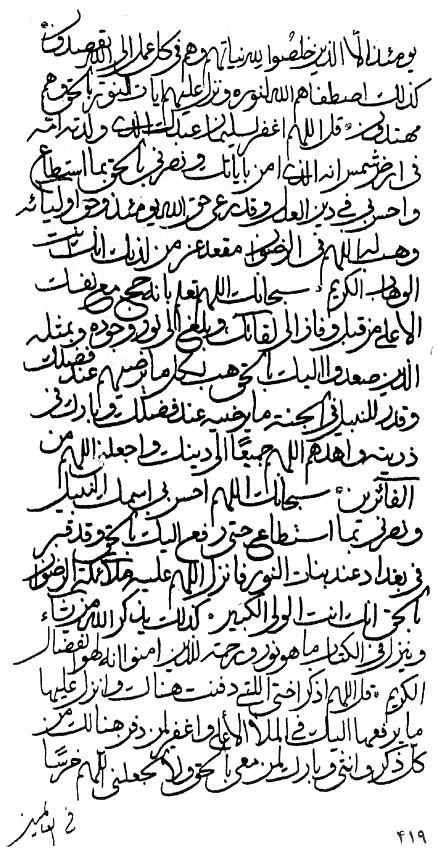 يومئذ الا الذين خلصوا لله نياتهم وهم فى كل عمل الى الله يقصدون
كذلك اصطفاهم الله لنوره ونزل عليهم ايات النور بالحق وهم
مهتدون قل اللهم اغفر لسليمان عبدك الذى ولدته امه
فى ارض شمس انه الذى امن باياتك ونصرنى بالحق بما استطاع
واحسن بى فى دين العدل وقد رعى حق الله يومئذ وحق اوليائه
وهب له اللهم فى الرضوان مقعد عز من لدنك انك انت
الوهاب الكريم سبحانك اللهم تعلم بانه حج مع
الاعلى من قبل وفاز الى لقائك وبلغ الى نور وجوده وبمثله
الذين صعدوا اليك بالحق هب لكل ما ترضيهم عند فضلك
وقدر للنبيل فى الجنة ما يرضيه عند فضلك وبارك فى
ذريته واهدهم اللهم جميعًا الى دينك واجعلنى اللهم من
الفائزين سبحانك اللهم احسن بى اسمك النبيل
ونصرنى بما استطاع حتى رفع اليك بالحق وقد قبر
فى بغداد عند بنات النور فانزل اللهم عليه ملائكة الرضوان
بالحق انك انت الولى الكبير كذلك يذكر الله من يشاء
وينزل فى الكتاب ما هو نور ورحمة للذين امنوا انه هو الفضال
الكريم قل اللهم اذكر اختى اللتى دفنت هناك وانزل عليها
ما يرفعها اليك فى الملأ الاعلى واغفر لمن دفن هنالك من
كل ذكر وانثى وبارك لمن معى بالحق ولا تجعلنى اللهم
فى العالمين
٤١٩